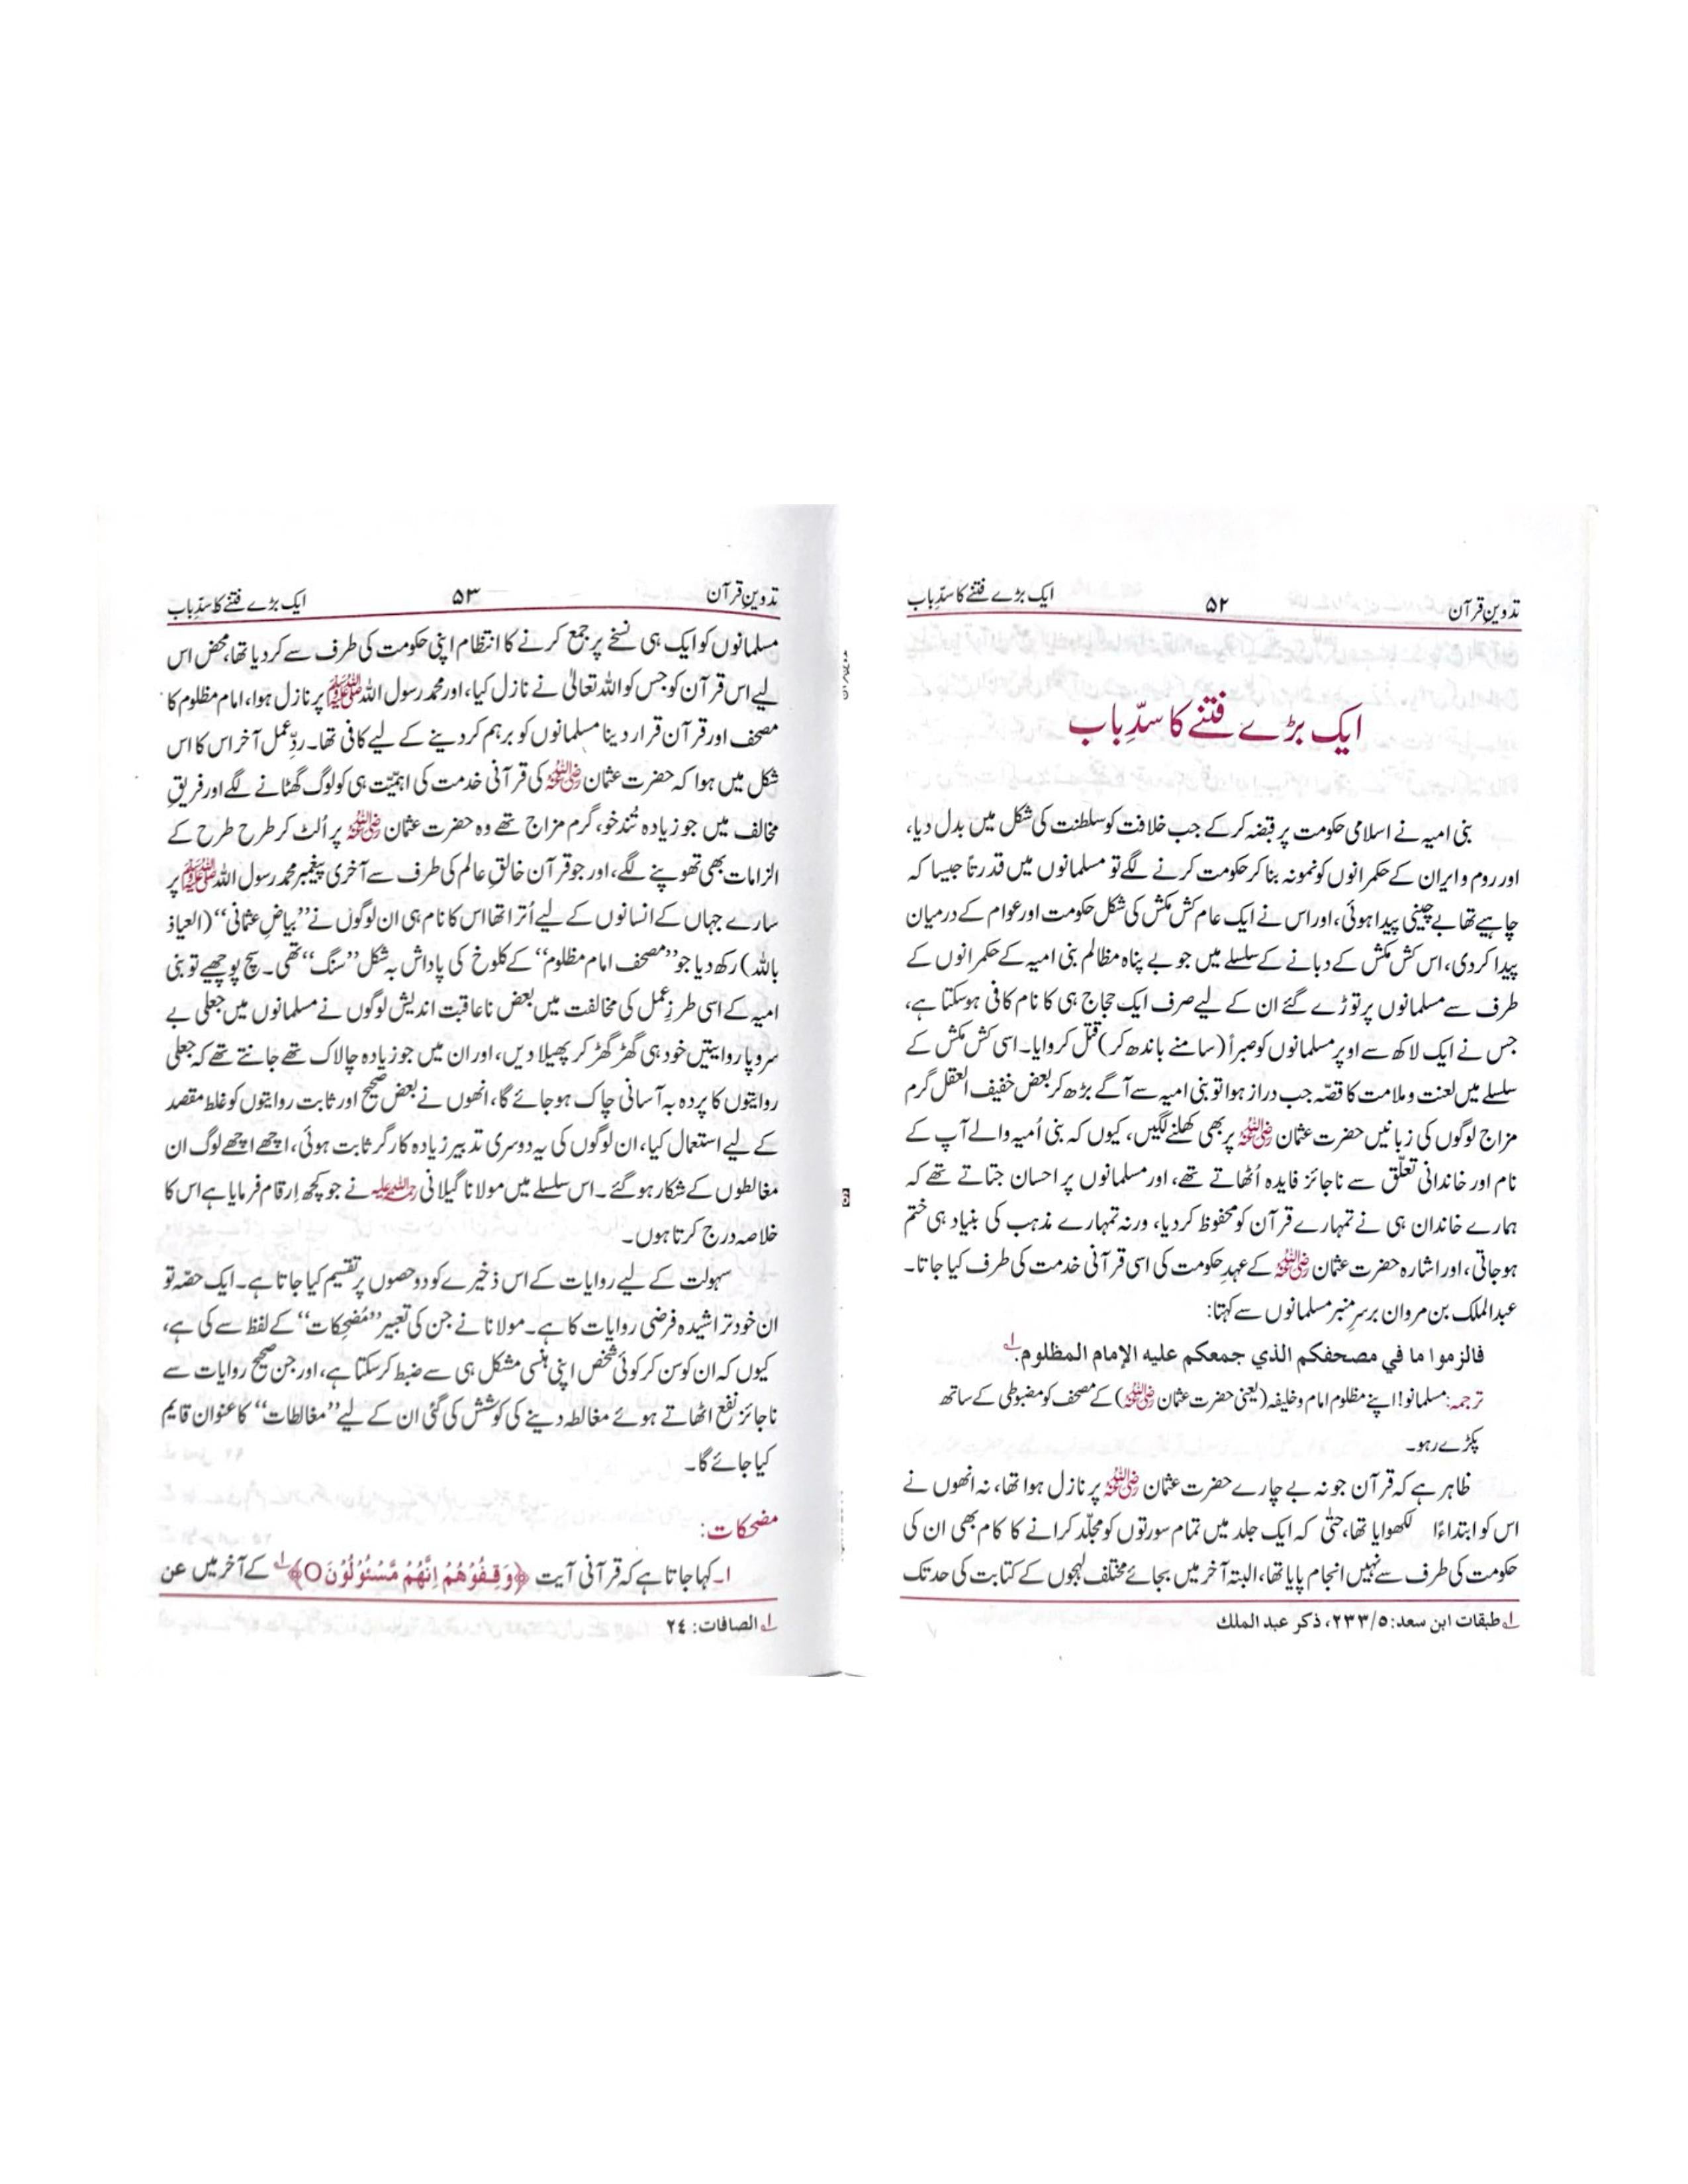 تدوینِ قرآن ۵۲ ایک بڑے فتنے کا سدِّ باب
ایک بڑے فتنے کا سدِّ باب
بنی امیہ نے اسلامی حکومت پر قبضہ کر کے جب خلافت کو سلطنت کی شکل میں بدل دیا،
اور روم و ایران کے حکمرانوں کو نمونہ بنا کر حکومت کرنے لگے تو مسلمانوں میں قدرتاً جیسا کہ
چاہیے تھا بے چینی پیدا ہوئی، اور اس نے ایک عام کش مکش کی شکل حکومت اور عوام کے درمیان
پیدا کردی، اس کش مکش کے دبانے کے سلسلے میں جو بے پناہ مظالم بنی امیہ کے حکمرانوں کے
طرف سے مسلمانوں پر توڑے گئے ان کے لیے صرف ایک حجاج ہی کا نام کافی ہوسکتا ہے،
جس نے ایک لاکھ سے اوپر مسلمانوں کو صبراً (سامنے باندھ کر) قتل کروایا۔ اسی کش مکش کے
سلسلے میں لعنت و ملامت کا قصّہ جب دراز ہوا تو بنی امیہ سے آگے بڑھ کر بعض خفیف العقل گرم
مزاج لوگوں کی زبانیں حضرت عثمان رضی اللہ عنہ پر بھی کھلنے لگیں، کیوں کہ بنی اُمیہ والے آپ کے
نام اور خاندانی تعلّق سے ناجائز فایدہ اُٹھاتے تھے، اور مسلمانوں پر احسان جتاتے تھے کہ
ہمارے خاندان ہی نے تمہارے قرآن کو محفوظ کردیا، ورنہ تمہارے مذہب کی بنیاد ہی ختم
ہوجاتی، اور اشارہ حضرت عثمان رضی اللہ عنہ کے عہدِ حکومت کی اسی قرآنی خدمت کی طرف کیا جاتا۔
عبدالملک بن مروان برسرِ منبر مسلمانوں سے کہتا:
فالزموا ما في مصحفكم الذي جمعكم عليه الإمام المظلوم.؂۱
ترجمہ: مسلمانو! اپنے مظلوم امام و خلیفہ (یعنی حضرت عثمان رضی اللہ عنہ) کے مصحف کو مضبوطی کے ساتھ
پکڑے رہو۔
ظاہر ہے کہ قرآن جو نہ بے چارے حضرت عثمان رضی اللہ عنہ پر نازل ہوا تھا، نہ انھوں نے
اس کو ابتداءً لکھوایا تھا، حتّٰی کہ ایک جلد میں تمام سورتوں کو مجلّد کرانے کا کام بھی ان کی
حکومت کی طرف سے نہیں انجام پایا تھا، البتہ آخر میں بجائے مختلف لہجوں کے کتابت کی حد تک
؂۱ طبقات ابن سعد: ۵/۲۳۳، ذکر عبد الملك
تدوینِ قرآن ۵۳ ایک بڑے فتنے کا سدِّ باب
مسلمانوں کو ایک ہی نسخے پر جمع کرنے کا انتظام اپنی حکومت کی طرف سے کردیا تھا، محض اس
لیے اس قرآن کو جس کو اللہ تعالیٰ نے نازل کیا، اور محمد رسول اللہ ﷺ پر نازل ہوا، امام مظلوم کا
مصحف اور قرآن قرار دینا مسلمانوں کو برہم کردینے کے لیے کافی تھا۔ ردِّ عمل آخر اس کا اس
شکل میں ہوا کہ حضرت عثمان رضی اللہ عنہ کی قرآنی خدمت کی اہمیّت ہی کو لوگ گھٹانے لگے اور فریقِ
مخالف میں جو زیادہ تُند خو، گرم مزاج تھے وہ حضرت عثمان رضی اللہ عنہ پر اُلٹ کر طرح طرح کے
الزامات بھی تھوپنے لگے، اور جو قرآن خالقِ عالم کی طرف سے آخری پیغمبر محمد رسول اللہ ﷺ پر
سارے جہاں کے انسانوں کے لیے اُترا تھا اس کا نام ہی ان لوگوں نے ”بیاضِ عثمانی“ (العیاذ
باللہ) رکھ دیا جو ”مصحف امام مظلوم“ کے کلوخ کی پاداش بہ شکل ”سنگ“ تھی۔ سچ پوچھیے تو بنی
امیہ کے اسی طرزِ عمل کی مخالفت میں بعض ناعاقبت اندیش لوگوں نے مسلمانوں میں جعلی بے
سروپا روایتیں خود ہی گھڑ گھڑ کر پھیلا دیں، اور ان میں جو زیادہ چالاک تھے جانتے تھے کہ جعلی
روایتوں کا پردہ بہ آسانی چاک ہوجائے گا، انھوں نے بعض صحیح اور ثابت روایتوں کو غلط مقصد
کے لیے استعمال کیا، ان لوگوں کی یہ دوسری تدبیر زیادہ کارگر ثابت ہوئی، اچھے اچھے لوگ ان
مغالطوں کے شکار ہوگئے۔ اس سلسلے میں مولانا گیلانی رحمۃ اللہ علیہ نے جو کچھ اِرقام فرمایا ہے اس کا
خلاصہ درج کرتا ہوں۔
سہولت کے لیے روایات کے اس ذخیرے کو دو حصوں پر تقسیم کیا جاتا ہے۔ ایک حصّہ تو
ان خود تراشیدہ فرضی روایات کا ہے۔ مولانا نے جن کی تعبیر ”مُضحِکات“ کے لفظ سے کی ہے،
کیوں کہ ان کو سن کر کوئی شخص اپنی ہنسی مشکل ہی سے ضبط کرسکتا ہے، اور جن صحیح روایات سے
ناجائز نفع اٹھاتے ہوئے مغالطہ دینے کی کوشش کی گئی ان کے لیے ”مغالطات“ کا عنوان قایم
کیا جائے گا۔
مضحکات:
۱۔ کہا جاتا ہے کہ قرآنی آیت ﴿وَقِفُوْهُمْ اِنَّهُمْ مَّسْئُوْلُوْنَ○﴾؂۱ کے آخر میں عن
؂۱ الصافات: ٢٤